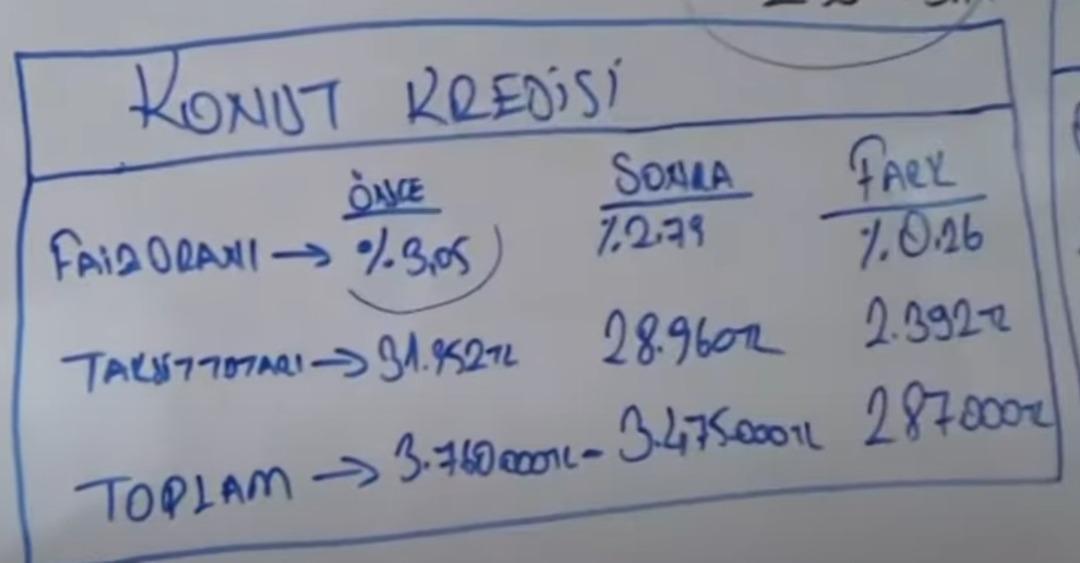 KONUT KREDİSİ
ÖNCE SONRA FARK
FAİZ ORANI → %3,05 %2.79 %0.26
TAKSİT TUTARI → 31.352TL 28.960TL 2.392TL
TOPLAM → 3.760000TL - 3.475000TL 287000TL